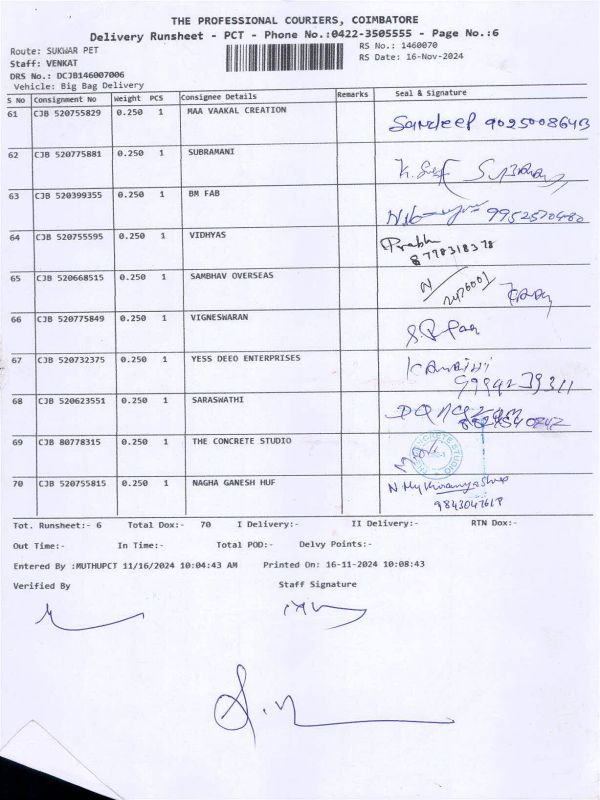 THE PROFESSIONAL COURIERS, COIMBATORE
Delivery Runsheet - PCT - Phone No.:0422-3505555 - Page No.:6
Route: SUKWAR PET
RS No.: 1460070
Staff: VENKAT
RS Date: 16-Nov-2024
DRS No.: DCJB146007006
Vehicle: Big Bag Delivery
S No Consignment No Weight PCS Consignee Details Remarks Seal & Signature
61 CJB 520755829 0.250 1 MAA VAAKAL CREATION Sandeep 9025008643
62 CJB 520775881 0.250 1 SUBRAMANI
63 CJB 520399355 0.250 1 BM FAB
64 CJB 520755595 0.250 1 VIDHYAS Prabhu
8778318378
65 CJB 520668515 0.250 1 SAMBHAV OVERSEAS
66 CJB 520775849 0.250 1 VIGNESWARAN
67 CJB 520732375 0.250 1 YESS DEEO ENTERPRISES
9994239311
68 CJB 520623551 0.250 1 SARASWATHI
69 CJB 80778315 0.250 1 THE CONCRETE STUDIO
70 CJB 520755815 0.250 1 NAGHA GANESH HUF
9843047618
Tot. Runsheet:- 6 Total Dox:- 70 I Delivery:- II Delivery:- RTN Dox:-
Out Time:- In Time:- Total POD:- Delvy Points:-
Entered By :MUTHUPCT 11/16/2024 10:04:43 AM Printed On: 16-11-2024 10:08:43
Verified By Staff Signature